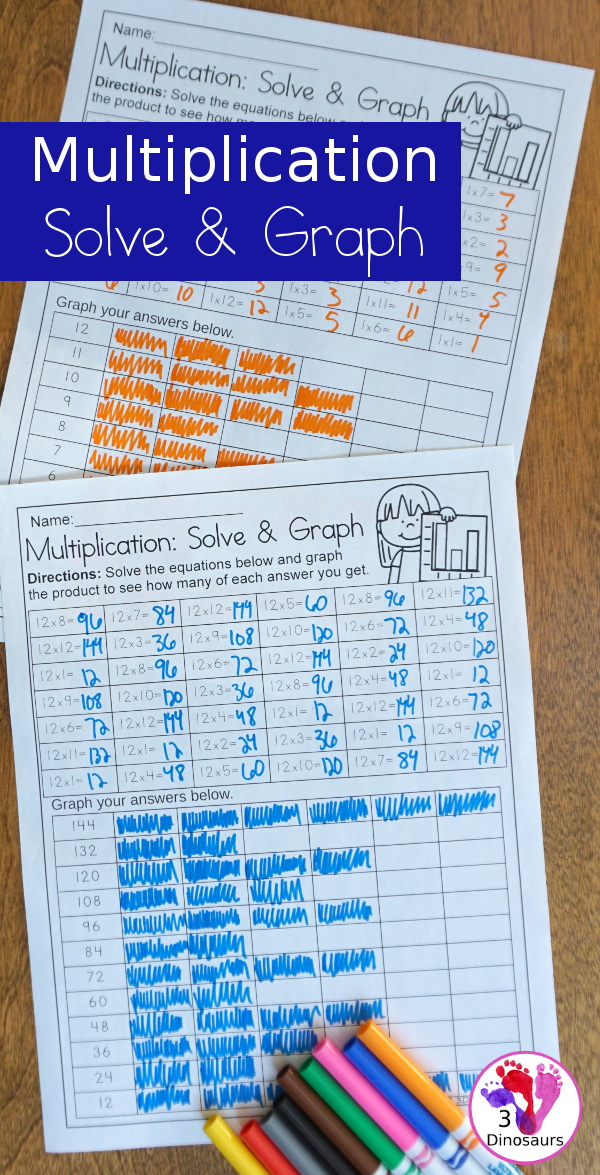 Name:
Multiplication: Solve & Graph
Directions: Solve the equations below
the product to see how
Multiplication
Solve & Graph
1x7= 7
1x3= 3
x2= 2
9= 9
1x5= 5
1x4= 4
1x1= 1
1x10= 10
1x12= 12
1x3= 3
1x5= 5
12
1x11= 11
1x6= 6
Graph your answers below.
12
11
10
9
8
7
6
Name:
Multiplication: Solve & Graph
Directions: Solve the equations below and graph
the product to see how many of each answer you get.
12x8= 96 12x7= 84 12x12= 144 12x5= 60 12x8= 96 12x11= 132
12x12= 144 12x3= 36 12x9= 108 12x10= 120 12x6= 72 12x4= 48
12x1= 12 12x8= 96 12x6= 72 12x12= 144 12x2= 24 12x10= 120
12x9= 108 12x10= 120 12x3= 36 12x8= 96 12x4= 48 12x1= 12
12x6= 72 12x12= 144 12x4= 48 12x1= 12 12x12= 144 12x6= 72
12x11= 132 12x1= 12 12x2= 24 12x3= 36 12x1= 12 12x9= 108
12x1= 12 12x4= 48 12x5= 60 12x10= 120 12x7= 84 12x12= 144
Graph your answers below.
144
132
120
108
96
84
72
60
48
36
24
12
3
Dinosaurs